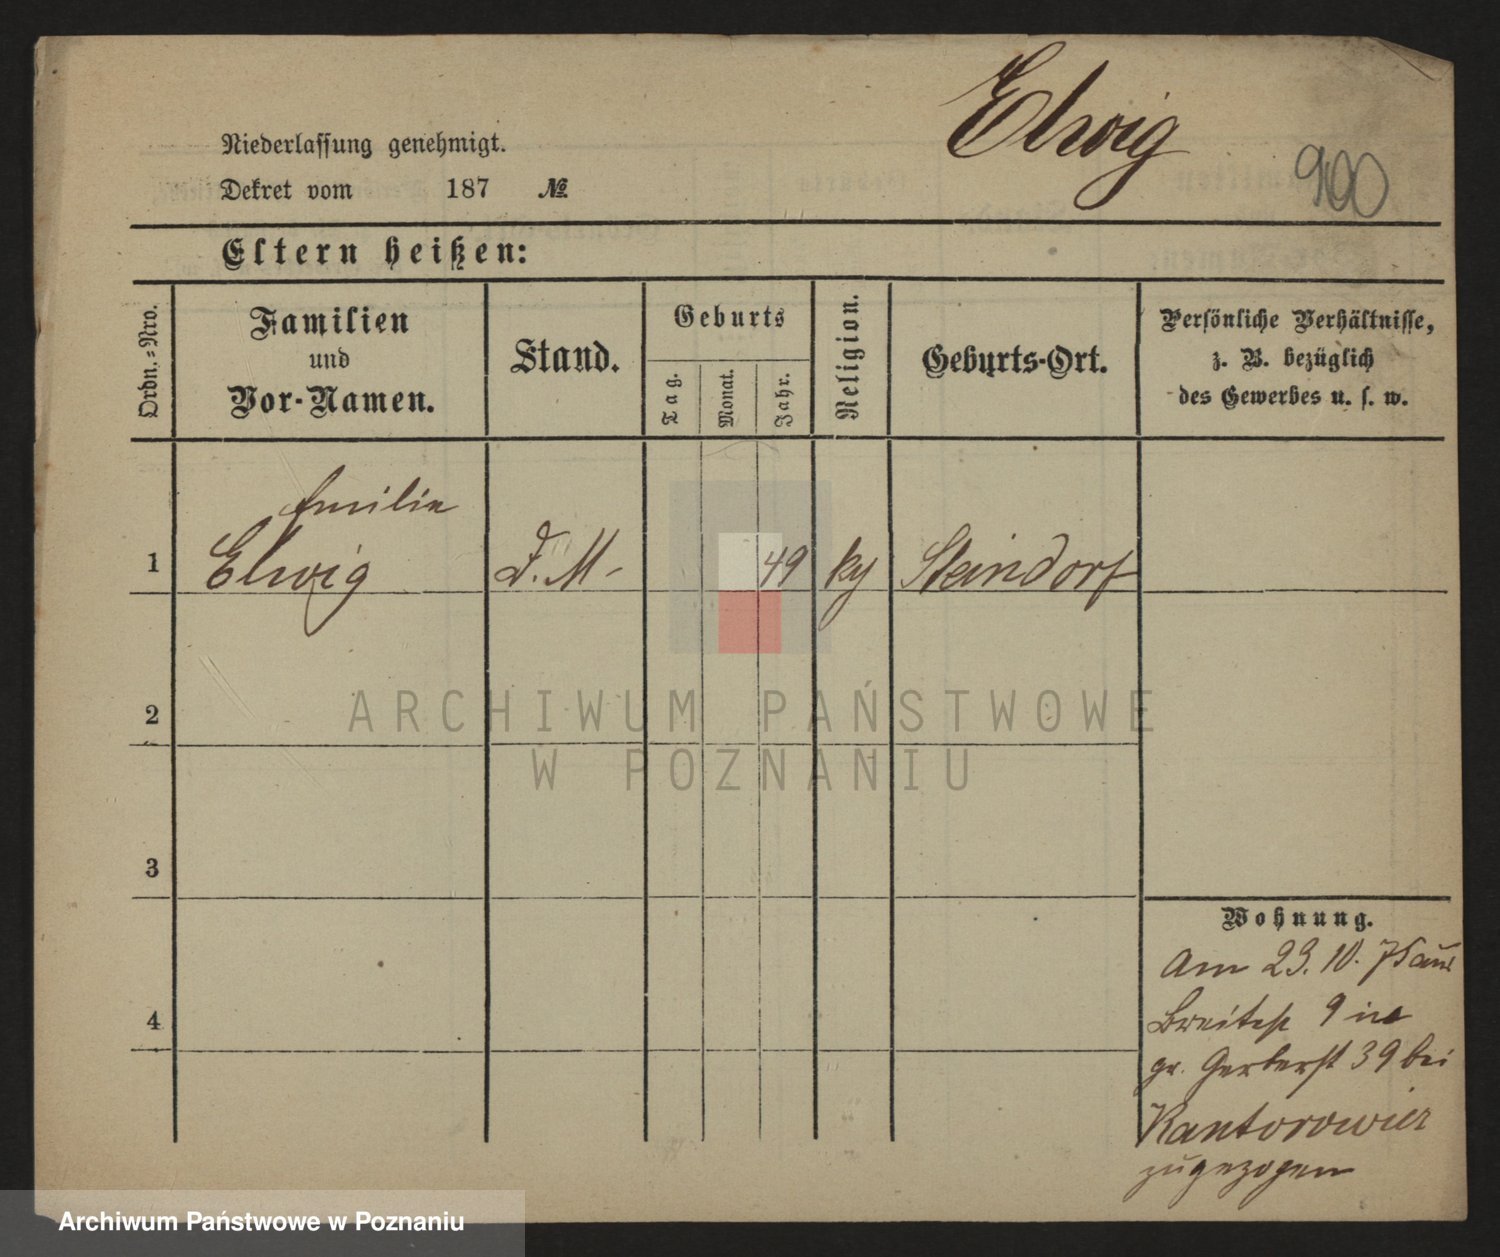 Elwig
900
Niederlassung genehmigt.
Dekret vom 187 №
Eltern heißen:
Ordn.-Nro.
Familien
und
Vor-Namen.
Stand.
Geburts
Tag.
Monat.
Jahr.
Religion.
Geburts-Ort.
Persönliche Verhältnisse,
z. B. bezüglich
des Gewerbes u. s. w.
Emilie
1 Elwig D. M- 49 Steindorf
2
3
4
Wohnung.
Am 23. 10. 75 aus
Breitestr 9 in
gr. Gerberst 39 bei
Kantorowicz
zugezogen
ARCHIWUM PAŃSTWOWE
W POZNANIU
Archiwum Państwowe w Poznaniu